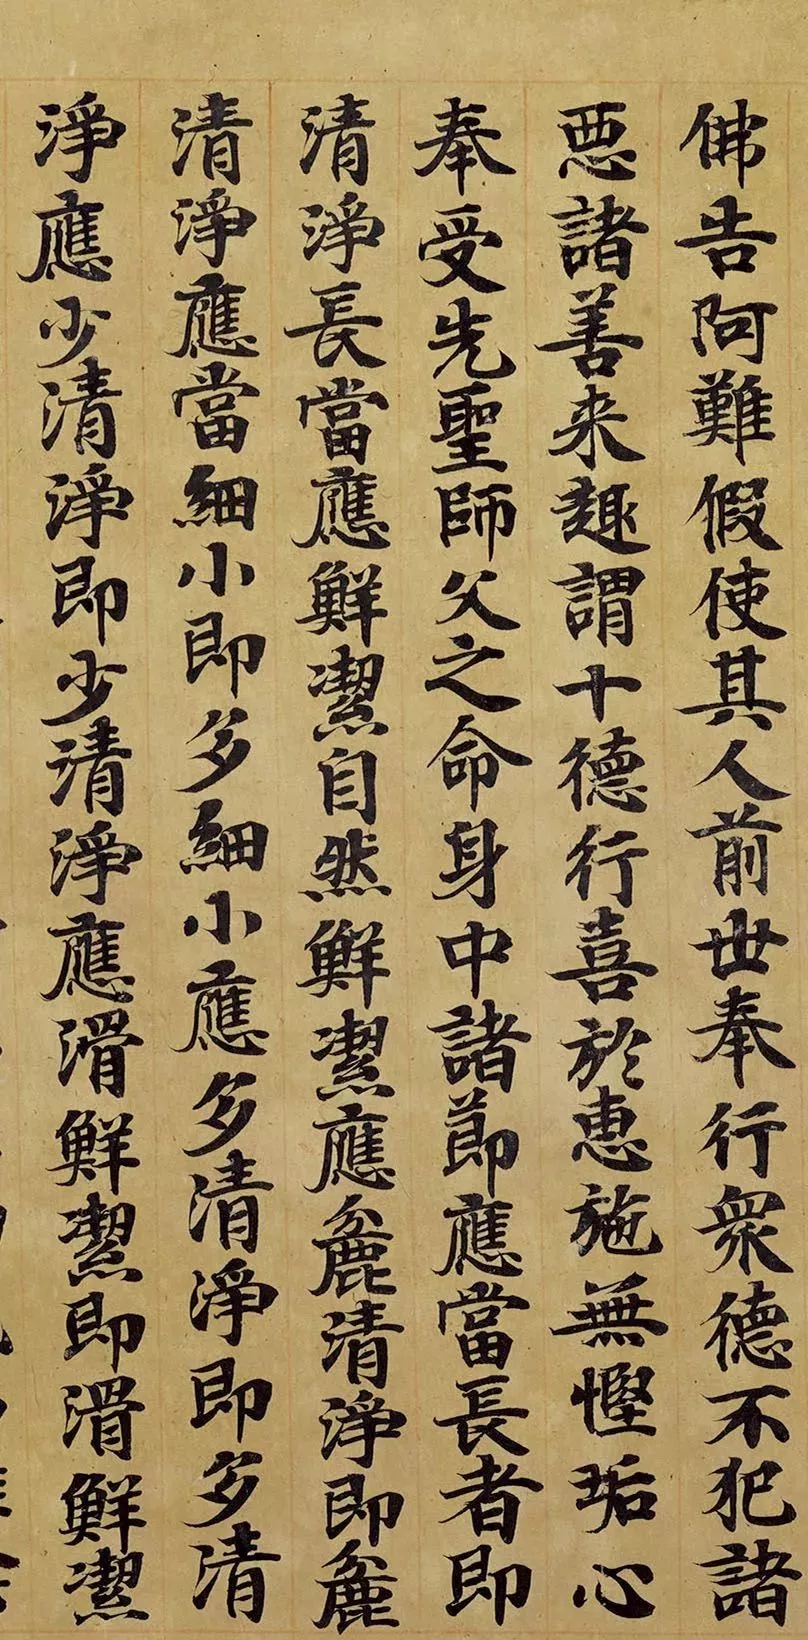 佛告阿難假使其人前世奉行衆德不犯諸
惡諸善来趣謂十德行喜於恵施無慳垢心
奉受先聖師父之命身中諸節應當長者即
清淨長當應鮮潔自然鮮潔應麁清淨即麁
清淨應當細小即多細小應多清淨即多清
淨應少清淨即少清淨應滑鮮潔即滑鮮潔